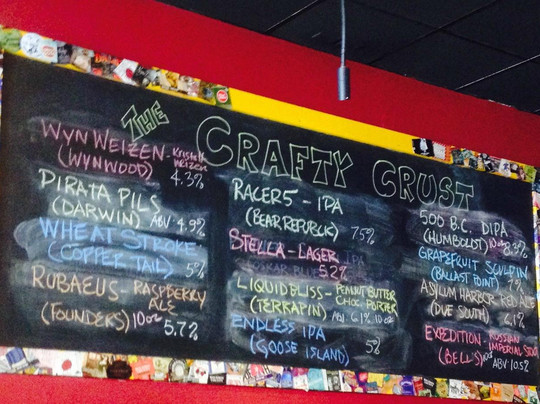 THE
CRAFTY CRUST
WYNWEIZEN - Kristall
Weizen
(WYNWOOD) 4.3%
PIRATA PILS
(DARWIN) ABV 4.9%
WHEAT STROKE
(COPPER TAIL) 5%
RUBAEUS - RASPBERRY
ALE
(FOUNDERS) 10oz 5.7%
RACER 5 - IPA
(BEAR REPUBLIC) 7.5%
STELLA - LAGER IPA
5.2%
LIQUID BLISS - PEANUT BUTTER
CHOC. PORTER
(TERRAPIN) ABV 6.1% 10 oz
ENDLESS IPA
(GOOSE ISLAND) 5%
500 B.C. DIPA
(HUMBOLDT) 10oz 8.3%
GRAPEFRUIT SCULPIN
(BALLAST POINT) 7%
ASYLUM HARBOR RED ALE
(DUE SOUTH) 6.1%
EXPEDITION - RUSSIAN
IMPERIAL STOUT
(BELL'S) 10oz ABV 10.5%